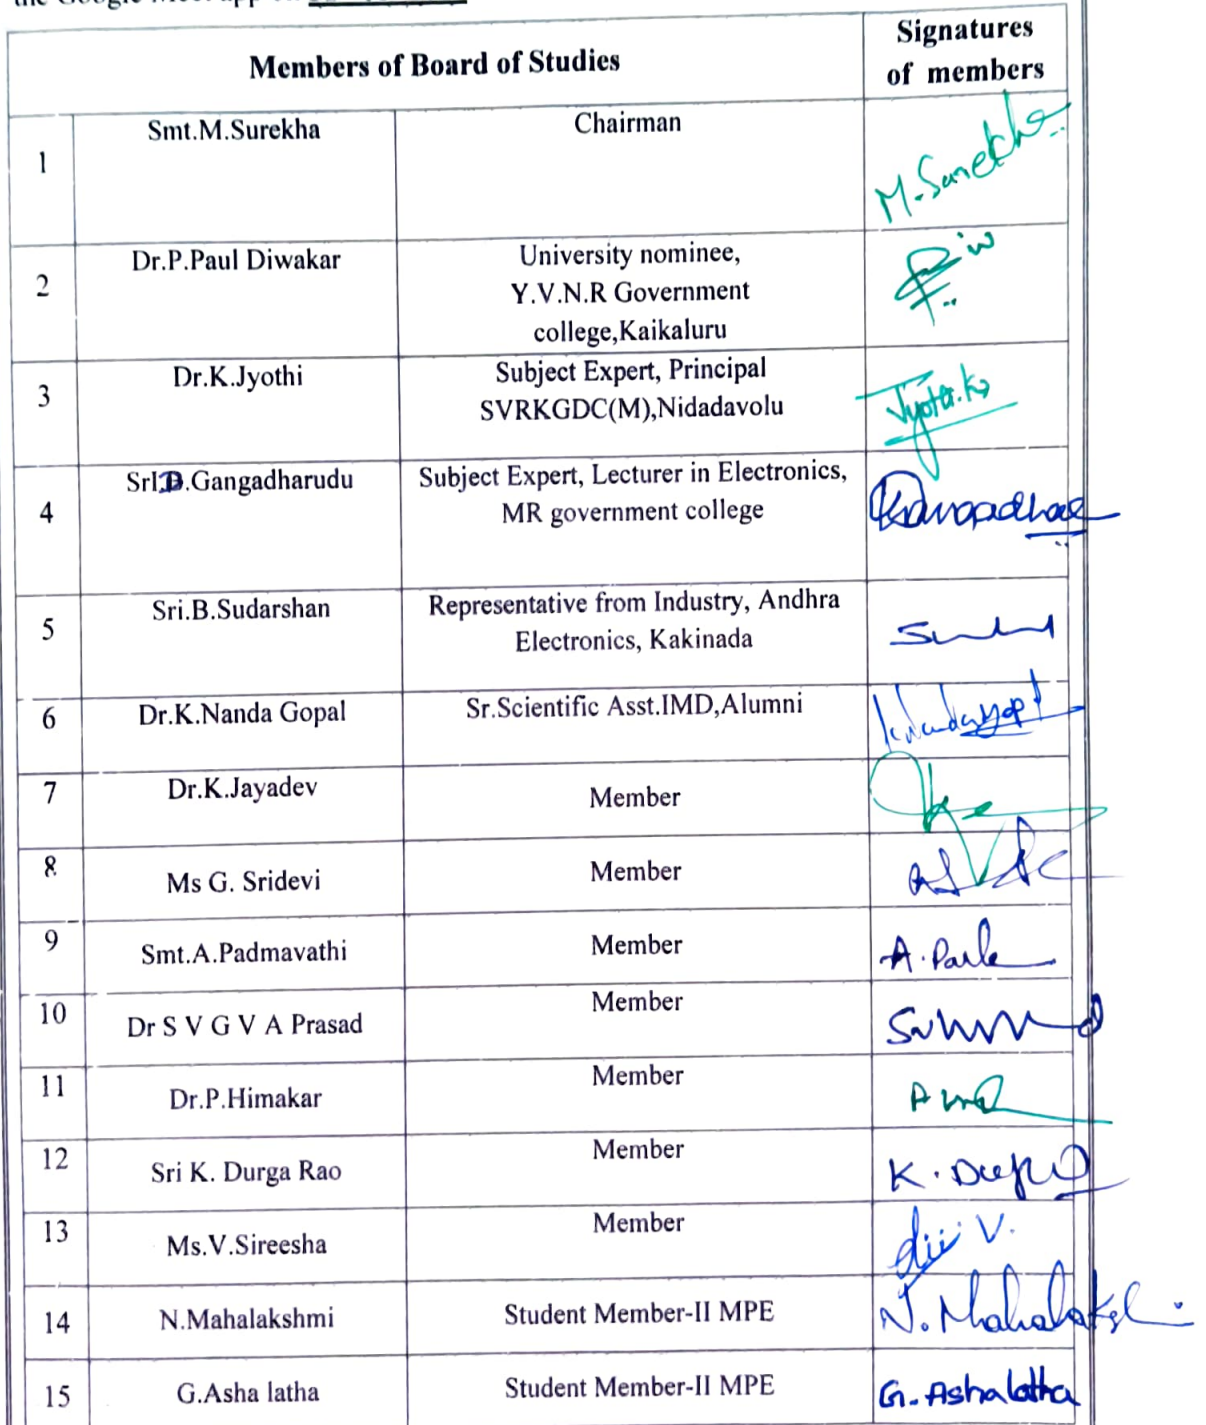 the Google Meet app on
Members of Board of Studies
Signatures
of members
1
Smt.M.Surekha
Chairman
M.Surekha
2
Dr.P.Paul Diwakar
University nominee,
Y.V.N.R Government
college,Kaikaluru
3
Dr.K.Jyothi
Subject Expert, Principal
SVRKGDC(M),Nidadavolu
Jyothi.K
4
SrI.D.Gangadharudu
Subject Expert, Lecturer in Electronics,
MR government college
5
Sri.B.Sudarshan
Representative from Industry, Andhra
Electronics, Kakinada
6
Dr.K.Nanda Gopal
Sr.Scientific Asst.IMD,Alumni
7
Dr.K.Jayadev
Member
8
Ms G. Sridevi
Member
9
Smt.A.Padmavathi
Member
10
Dr S V G V A Prasad
Member
11
Dr.P.Himakar
Member
12
Sri K. Durga Rao
Member
13
Ms.V.Sireesha
Member
14
N.Mahalakshmi
Student Member-II MPE
N. Mahalakshmi
15
G.Asha latha
Student Member-II MPE
G. Ashalatha